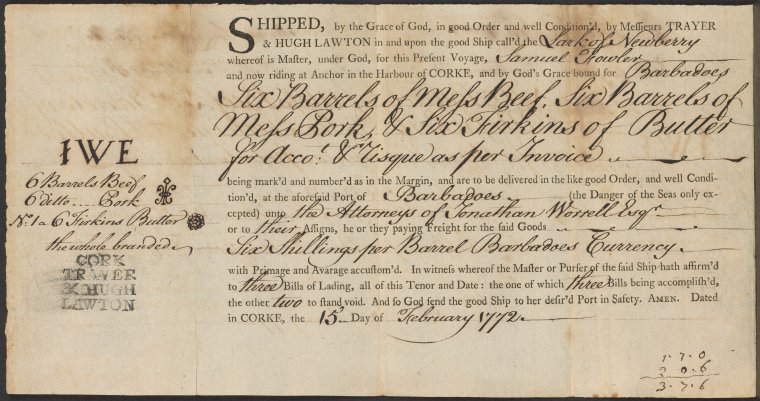 SHIPPED, by the Grace of God, in good Order and well Condition'd, by Messieurs TRAYER
& HUGH LAWTON in and upon the good Ship call'd the Lark of Newberry
whereof is Master, under God, for this Present Voyage, Samuel Fowler
and now riding at Anchor in the Harbour of CORKE, and by God's Grace bound for Barbadoes
Six Barrels of Mess Beef, Six Barrels of
Mess Pork, & Six Firkins of Butter
for Accot. & Risque as per Invoice
being mark'd and number'd as in the Margin, and are to be delivered in the like good Order, and well Condi-
tion'd, at the aforesaid Port of Barbadoes (the Danger of the Seas only ex-
cepted) unto the Attorneys of Jonathan Worrell Esqr
or to their Assigns, he or they paying Freight for the said Goods
Six Shillings per Barrel Barbadoes Currency
with Primage and Avarage accustom'd. In witness whereof the Master or Purser of the said Ship hath affirm'd
to three Bills of Lading, all of this Tenor and Date: the one of which three Bills being accomplish'd,
the other two to stand void. And so God send the good Ship to her desir'd Port in Safety. AMEN. Dated
in CORKE, the 15 Day of February 1772
IWE
6 Barrels Beef
6 ditto Pork
No. 1 a 6 Firkins Butter
the whole branded
CORK
TRAYER
& HUGH
LAWTON
1.7.0
2.0.6
3.7.6